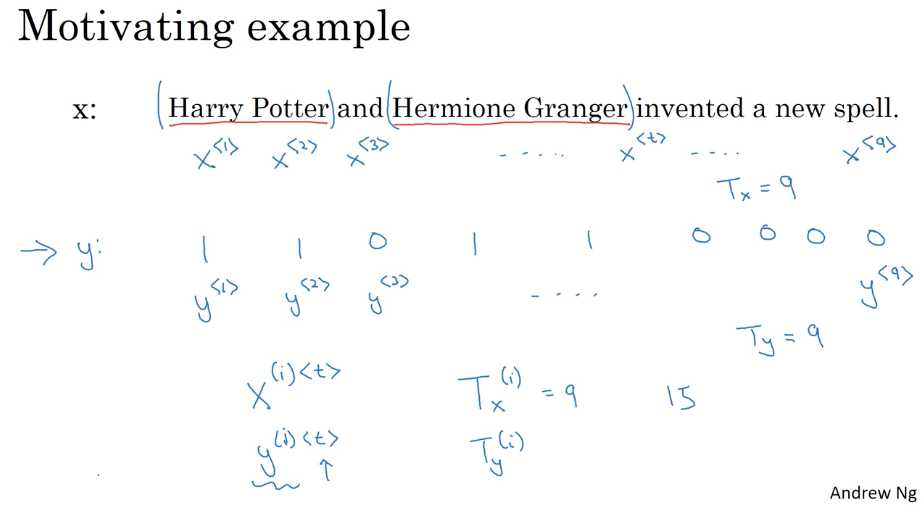 Motivating example
x: (Harry Potter) and (Hermione Granger) invented a new spell.
x<1> x<2> x<3> ..... x<t> .... x<9>
Tx = 9
→ y: 1 1 0 1 1 0 0 0 0
y<1> y<2> y<3> .... y<9>
Ty = 9
X(i)<t> Tx(i) = 9 15
y(i)<t> ↑ Ty(i)
Andrew Ng